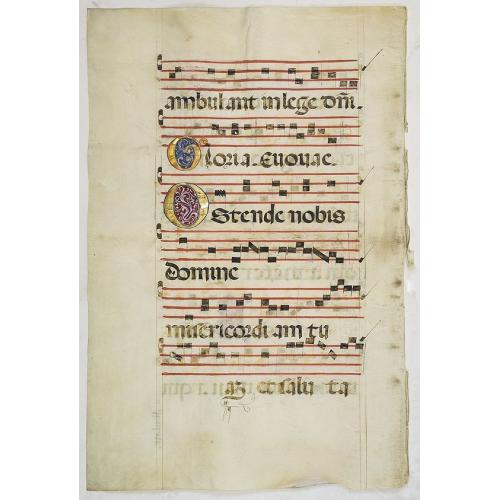 ambulant in lege dñi.
Gloria. Euouae.
Ostende nobis
Domine
misericordi am tu
az et salu ta